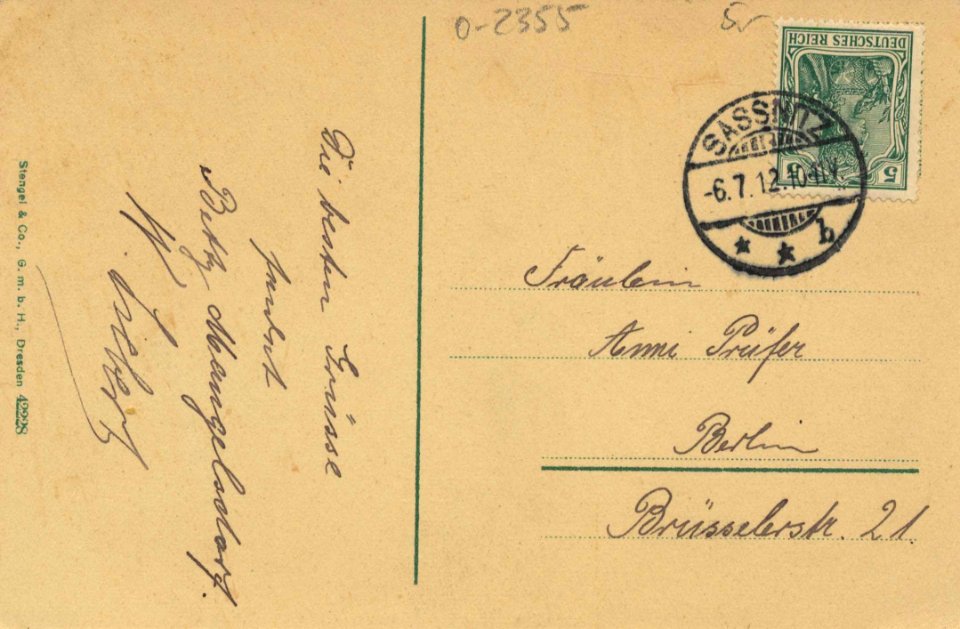 0-2355
5.-
DEUTSCHES REICH
5 5
SASSNITZ
-6.7.12.10-11V.
* * b
Die besten Grüsse
sendet
Betty Mangelsdorf.
W.
Fräulein
Anni Prüfer
Berlin
Brüsselerstr. 21.
Stengel & Co., G. m. b. H., Dresden 42228